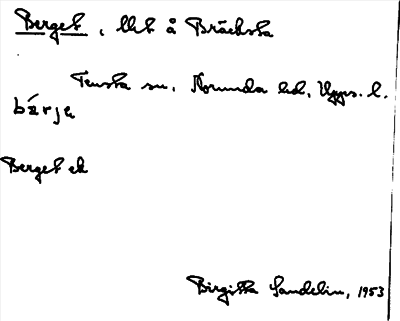 Berget, llt å Bräcksta
Tensta sn. Norunda hd. Upps. l.
bärje
Berget ek
Birgitta Sandelin, 1953